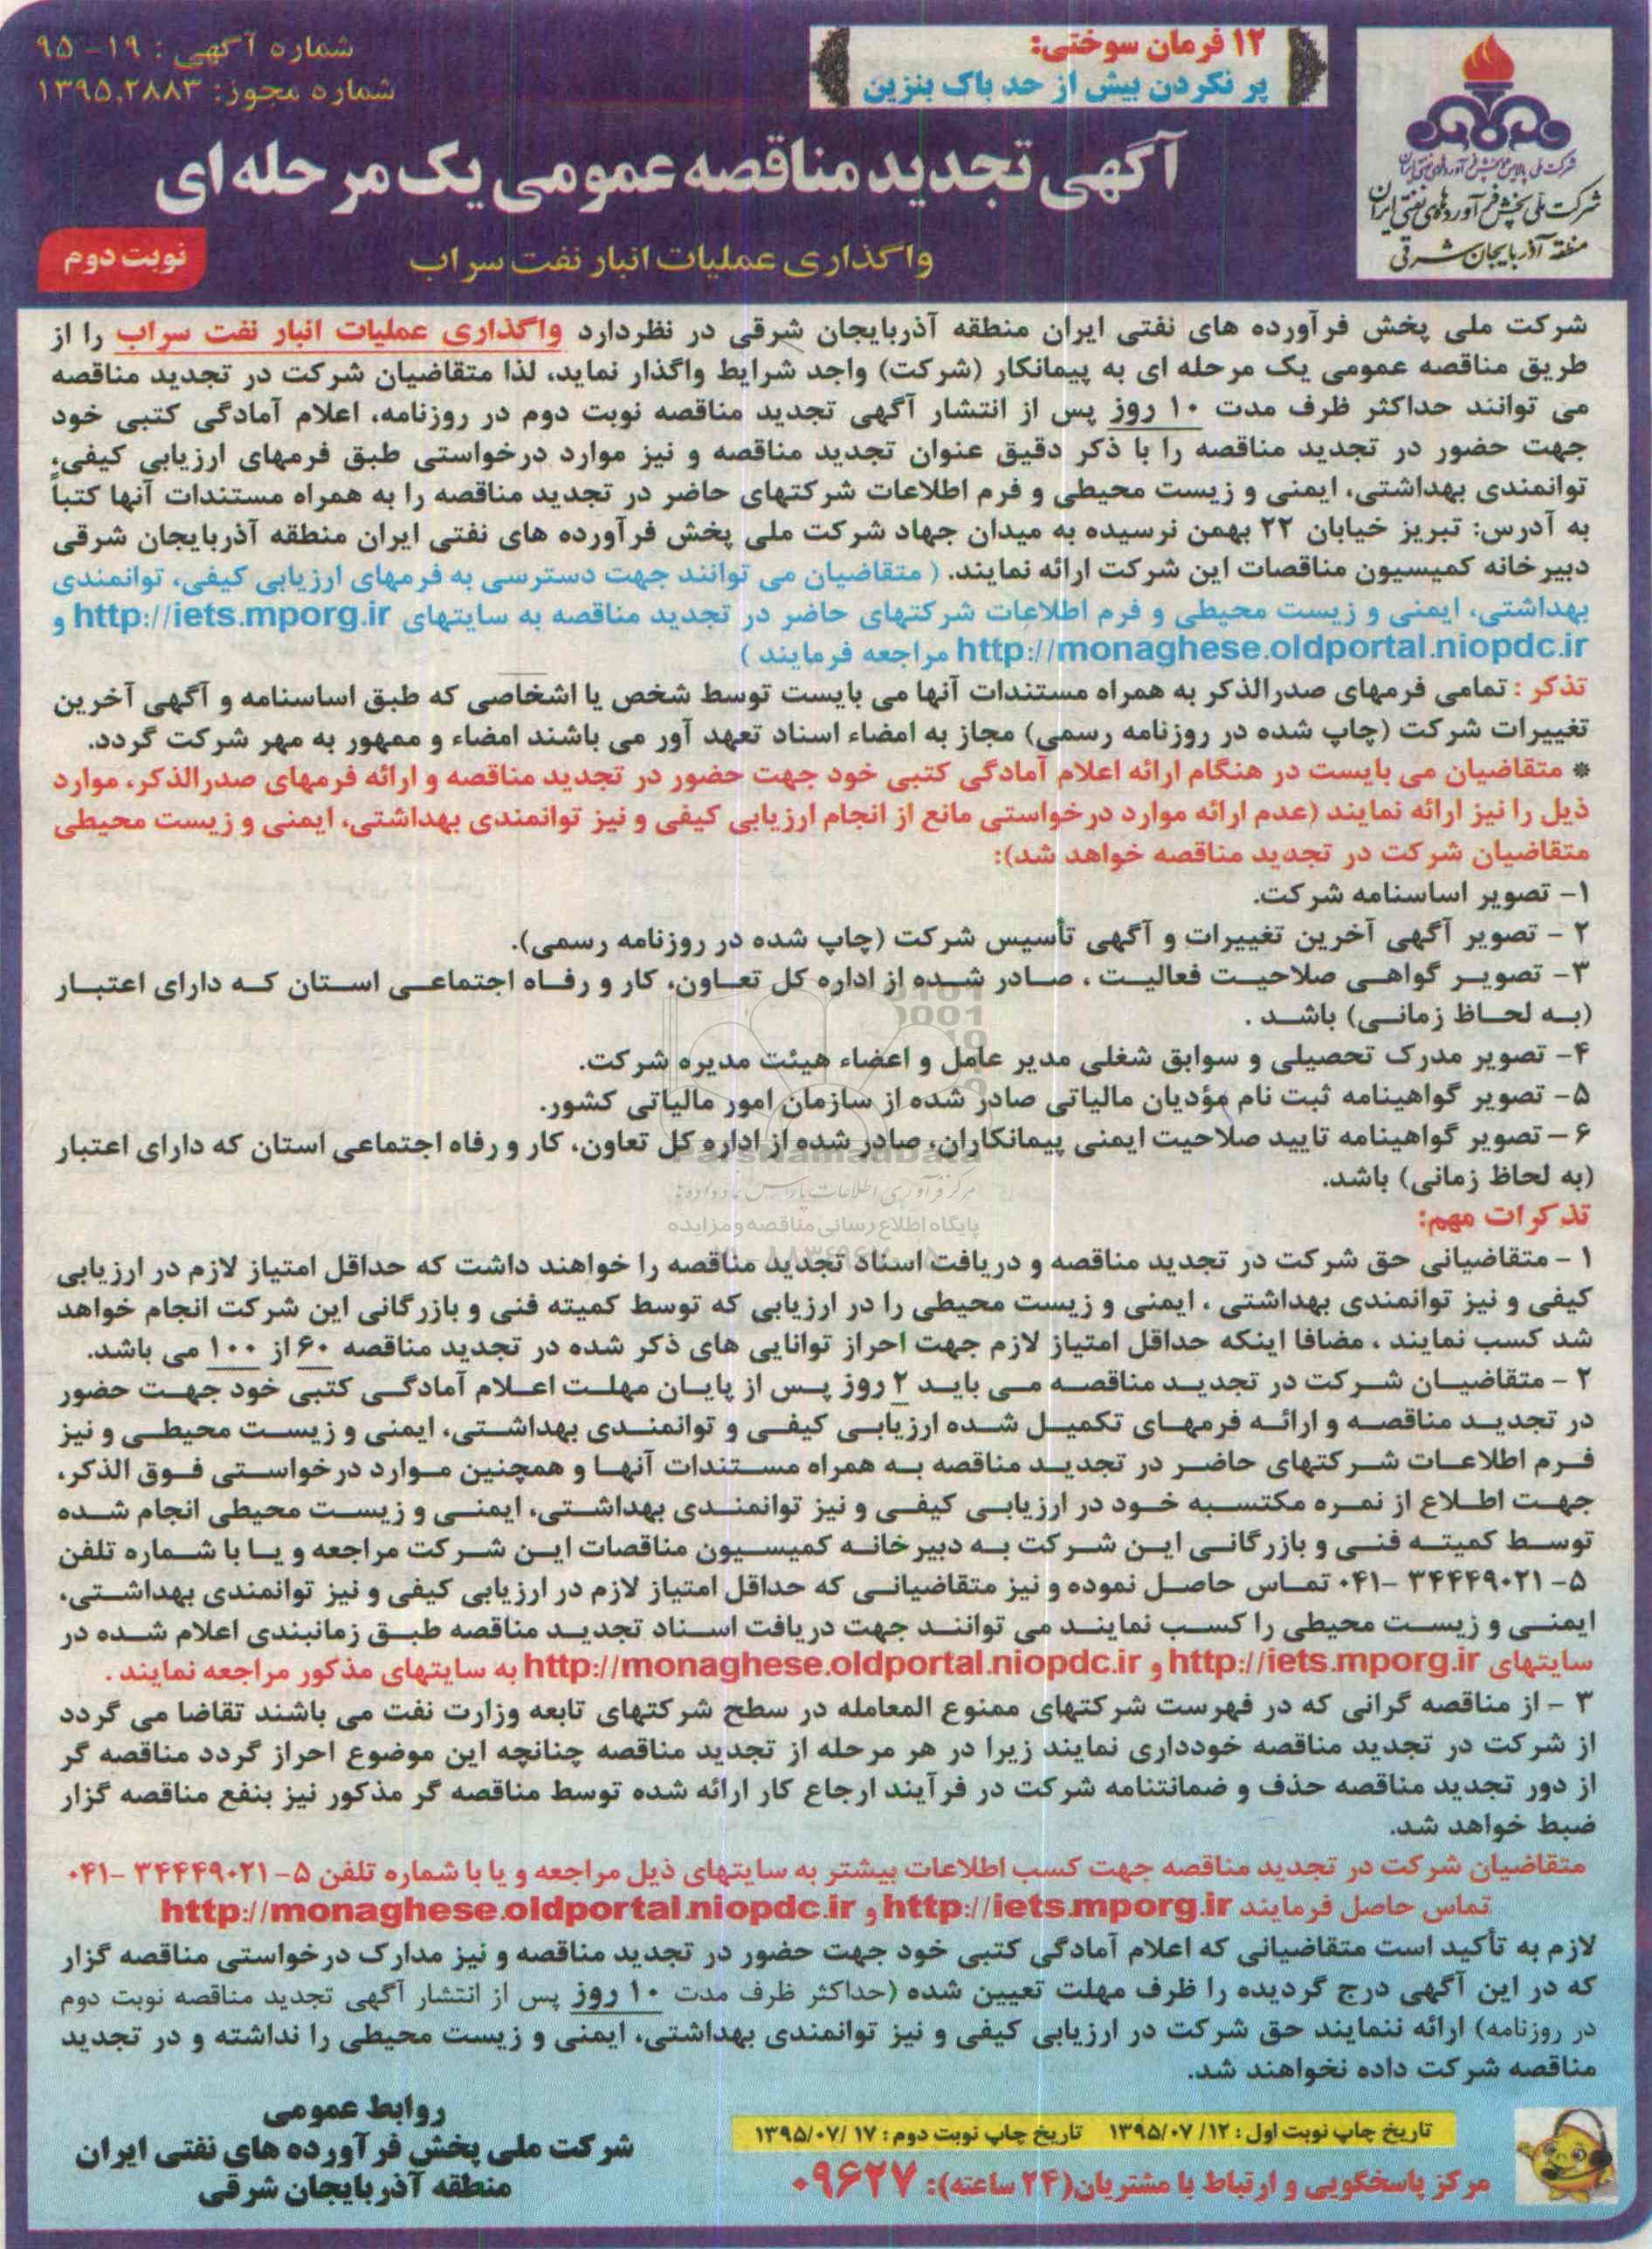 شرکت ملی پالایش و پخش فرآورده‌های نفتی ایران
شرکت ملی پخش فرآورده‌های نفتی ایران
منطقه آذربایجان شرقی
۱۲ فرمان سوختی:
پر نکردن بیش از حد باک بنزین
شماره آگهی : ۱۹- ۹۵
شماره مجوز: ۱۳۹۵,۲۸۸۳
آگهی تجدید مناقصه عمومی یک مرحله ای
واگذاری عملیات انبار نفت سراب
نوبت دوم
شرکت ملی پخش فرآورده های نفتی ایران منطقه آذربایجان شرقی در نظردارد واگذاری عملیات انبار نفت سراب را از
طریق مناقصه عمومی یک مرحله ای به پیمانکار (شرکت) واجد شرایط واگذار نماید، لذا متقاضیان شرکت در تجدید مناقصه
می توانند حداکثر ظرف مدت ۱۰ روز پس از انتشار آگهی تجدید مناقصه نوبت دوم در روزنامه، اعلام آمادگی کتبی خود
جهت حضور در تجدید مناقصه را با ذکر دقیق عنوان تجدید مناقصه و نیز موارد درخواستی طبق فرمهای ارزیابی کیفی،
توانمندی بهداشتی، ایمنی و زیست محیطی و فرم اطلاعات شرکتهای حاضر در تجدید مناقصه را به همراه مستندات آنها کتباً
به آدرس: تبریز خیابان ۲۲ بهمن نرسیده به میدان جهاد شرکت ملی پخش فرآورده های نفتی ایران منطقه آذربایجان شرقی
دبیرخانه کمیسیون مناقصات این شرکت ارائه نمایند. ( متقاضیان می توانند جهت دسترسی به فرمهای ارزیابی کیفی، توانمندی
بهداشتی، ایمنی و زیست محیطی و فرم اطلاعات شرکتهای حاضر در تجدید مناقصه به سایتهای http://iets.mporg.ir و
http://monaghese.oldportal.niopdc.ir مراجعه فرمایند )
تذکر : تمامی فرمهای صدرالذکر به همراه مستندات آنها می بایست توسط شخص یا اشخاصی که طبق اساسنامه و آگهی آخرین
تغییرات شرکت (چاپ شده در روزنامه رسمی) مجاز به امضاء اسناد تعهد آور می باشند امضاء و ممهور به مهر شرکت گردد.
* متقاضیان می بایست در هنگام ارائه اعلام آمادگی کتبی خود جهت حضور در تجدید مناقصه و ارائه فرمهای صدرالذکر، موارد
ذیل را نیز ارائه نمایند (عدم ارائه موارد درخواستی مانع از انجام ارزیابی کیفی و نیز توانمندی بهداشتی، ایمنی و زیست محیطی
متقاضیان شرکت در تجدید مناقصه خواهد شد):
۱- تصویر اساسنامه شرکت.
۲ - تصویر آگهی آخرین تغییرات و آگهی تأسیس شرکت (چاپ شده در روزنامه رسمی).
۳- تصویر گواهی صلاحیت فعالیت ، صادر شده از اداره کل تعاون، کار و رفاه اجتماعی استان که دارای اعتبار
(به لحاظ زمانی) باشد .
۴- تصویر مدرک تحصیلی و سوابق شغلی مدیر عامل و اعضاء هیئت مدیره شرکت.
۵- تصویر گواهینامه ثبت نام مؤدیان مالیاتی صادر شده از سازمان امور مالیاتی کشور.
۶ - تصویر گواهینامه تایید صلاحیت ایمنی پیمانکاران، صادر شده از اداره کل تعاون، کار و رفاه اجتماعی استان که دارای اعتبار
(به لحاظ زمانی) باشد.
ParsNamadData
مرکز فرآوری اطلاعات پارس نماد داده ها
پایگاه اطلاع رسانی مناقصه و مزایده
تذکرات مهم:
۱ - متقاضیانی حق شرکت در تجدید مناقصه و دریافت اسناد تجدید مناقصه را خواهند داشت که حداقل امتیاز لازم در ارزیابی
کیفی و نیز توانمندی بهداشتی ، ایمنی و زیست محیطی را در ارزیابی که توسط کمیته فنی و بازرگانی این شرکت انجام خواهد
شد کسب نمایند ، مضافا اینکه حداقل امتیاز لازم جهت احراز توانایی های ذکر شده در تجدید مناقصه ۶۰ از ۱۰۰ می باشد.
۲ - متقاضیان شرکت در تجدید مناقصه می باید ۲ روز پس از پایان مهلت اعلام آمادگی کتبی خود جهت حضور
در تجدید مناقصه و ارائه فرمهای تکمیل شده ارزیابی کیفی و توانمندی بهداشتی، ایمنی و زیست محیطی و نیز
فرم اطلاعات شرکتهای حاضر در تجدید مناقصه به همراه مستندات آنها و همچنین موارد درخواستی فوق الذکر،
جهت اطلاع از نمره مکتسبه خود در ارزیابی کیفی و نیز توانمندی بهداشتی، ایمنی و زیست محیطی انجام شده
توسط کمیته فنی و بازرگانی این شرکت به دبیرخانه کمیسیون مناقصات این شرکت مراجعه و یا با شماره تلفن
۵- ۳۴۴۴۹۰۲۱ -۰۴۱ تماس حاصل نموده و نیز متقاضیانی که حداقل امتیاز لازم در ارزیابی کیفی و نیز توانمندی بهداشتی،
ایمنی و زیست محیطی را کسب نمایند می توانند جهت دریافت اسناد تجدید مناقصه طبق زمانبندی اعلام شده در
سایتهای http://iets.mporg.ir و http://monaghese.oldportal.niopdc.ir به سایتهای مذکور مراجعه نمایند .
۳ - از مناقصه گرانی که در فهرست شرکتهای ممنوع المعامله در سطح شرکتهای تابعه وزارت نفت می باشند تقاضا می گردد
از شرکت در تجدید مناقصه خودداری نمایند زیرا در هر مرحله از تجدید مناقصه چنانچه این موضوع احراز گردد مناقصه گر
از دور تجدید مناقصه حذف و ضمانتنامه شرکت در فرآیند ارجاع کار ارائه شده توسط مناقصه گر مذکور نیز بنفع مناقصه گزار
ضبط خواهد شد.
متقاضیان شرکت در تجدید مناقصه جهت کسب اطلاعات بیشتر به سایتهای ذیل مراجعه و یا با شماره تلفن ۵- ۳۴۴۴۹۰۲۱ -۰۴۱
تماس حاصل فرمایند http://iets.mporg.ir و http://monaghese.oldportal.niopdc.ir
لازم به تأکید است متقاضیانی که اعلام آمادگی کتبی خود جهت حضور در تجدید مناقصه و نیز مدارک درخواستی مناقصه گزار
که در این آگهی درج گردیده را ظرف مهلت تعیین شده (حداکثر ظرف مدت ۱۰ روز پس از انتشار آگهی تجدید مناقصه نوبت دوم
در روزنامه) ارائه ننمایند حق شرکت در ارزیابی کیفی و نیز توانمندی بهداشتی، ایمنی و زیست محیطی را نداشته و در تجدید
مناقصه شرکت داده نخواهند شد.
تاریخ چاپ نوبت اول : ۱۲/ ۱۳۹۵/۰۷ تاریخ چاپ نوبت دوم : ۱۷ /۱۳۹۵/۰۷
مرکز پاسخگویی و ارتباط با مشتریان(۲۴ ساعته): ۰۹۶۲۷
روابط عمومی
شرکت ملی پخش فرآورده های نفتی ایران
منطقه آذربایجان شرقی